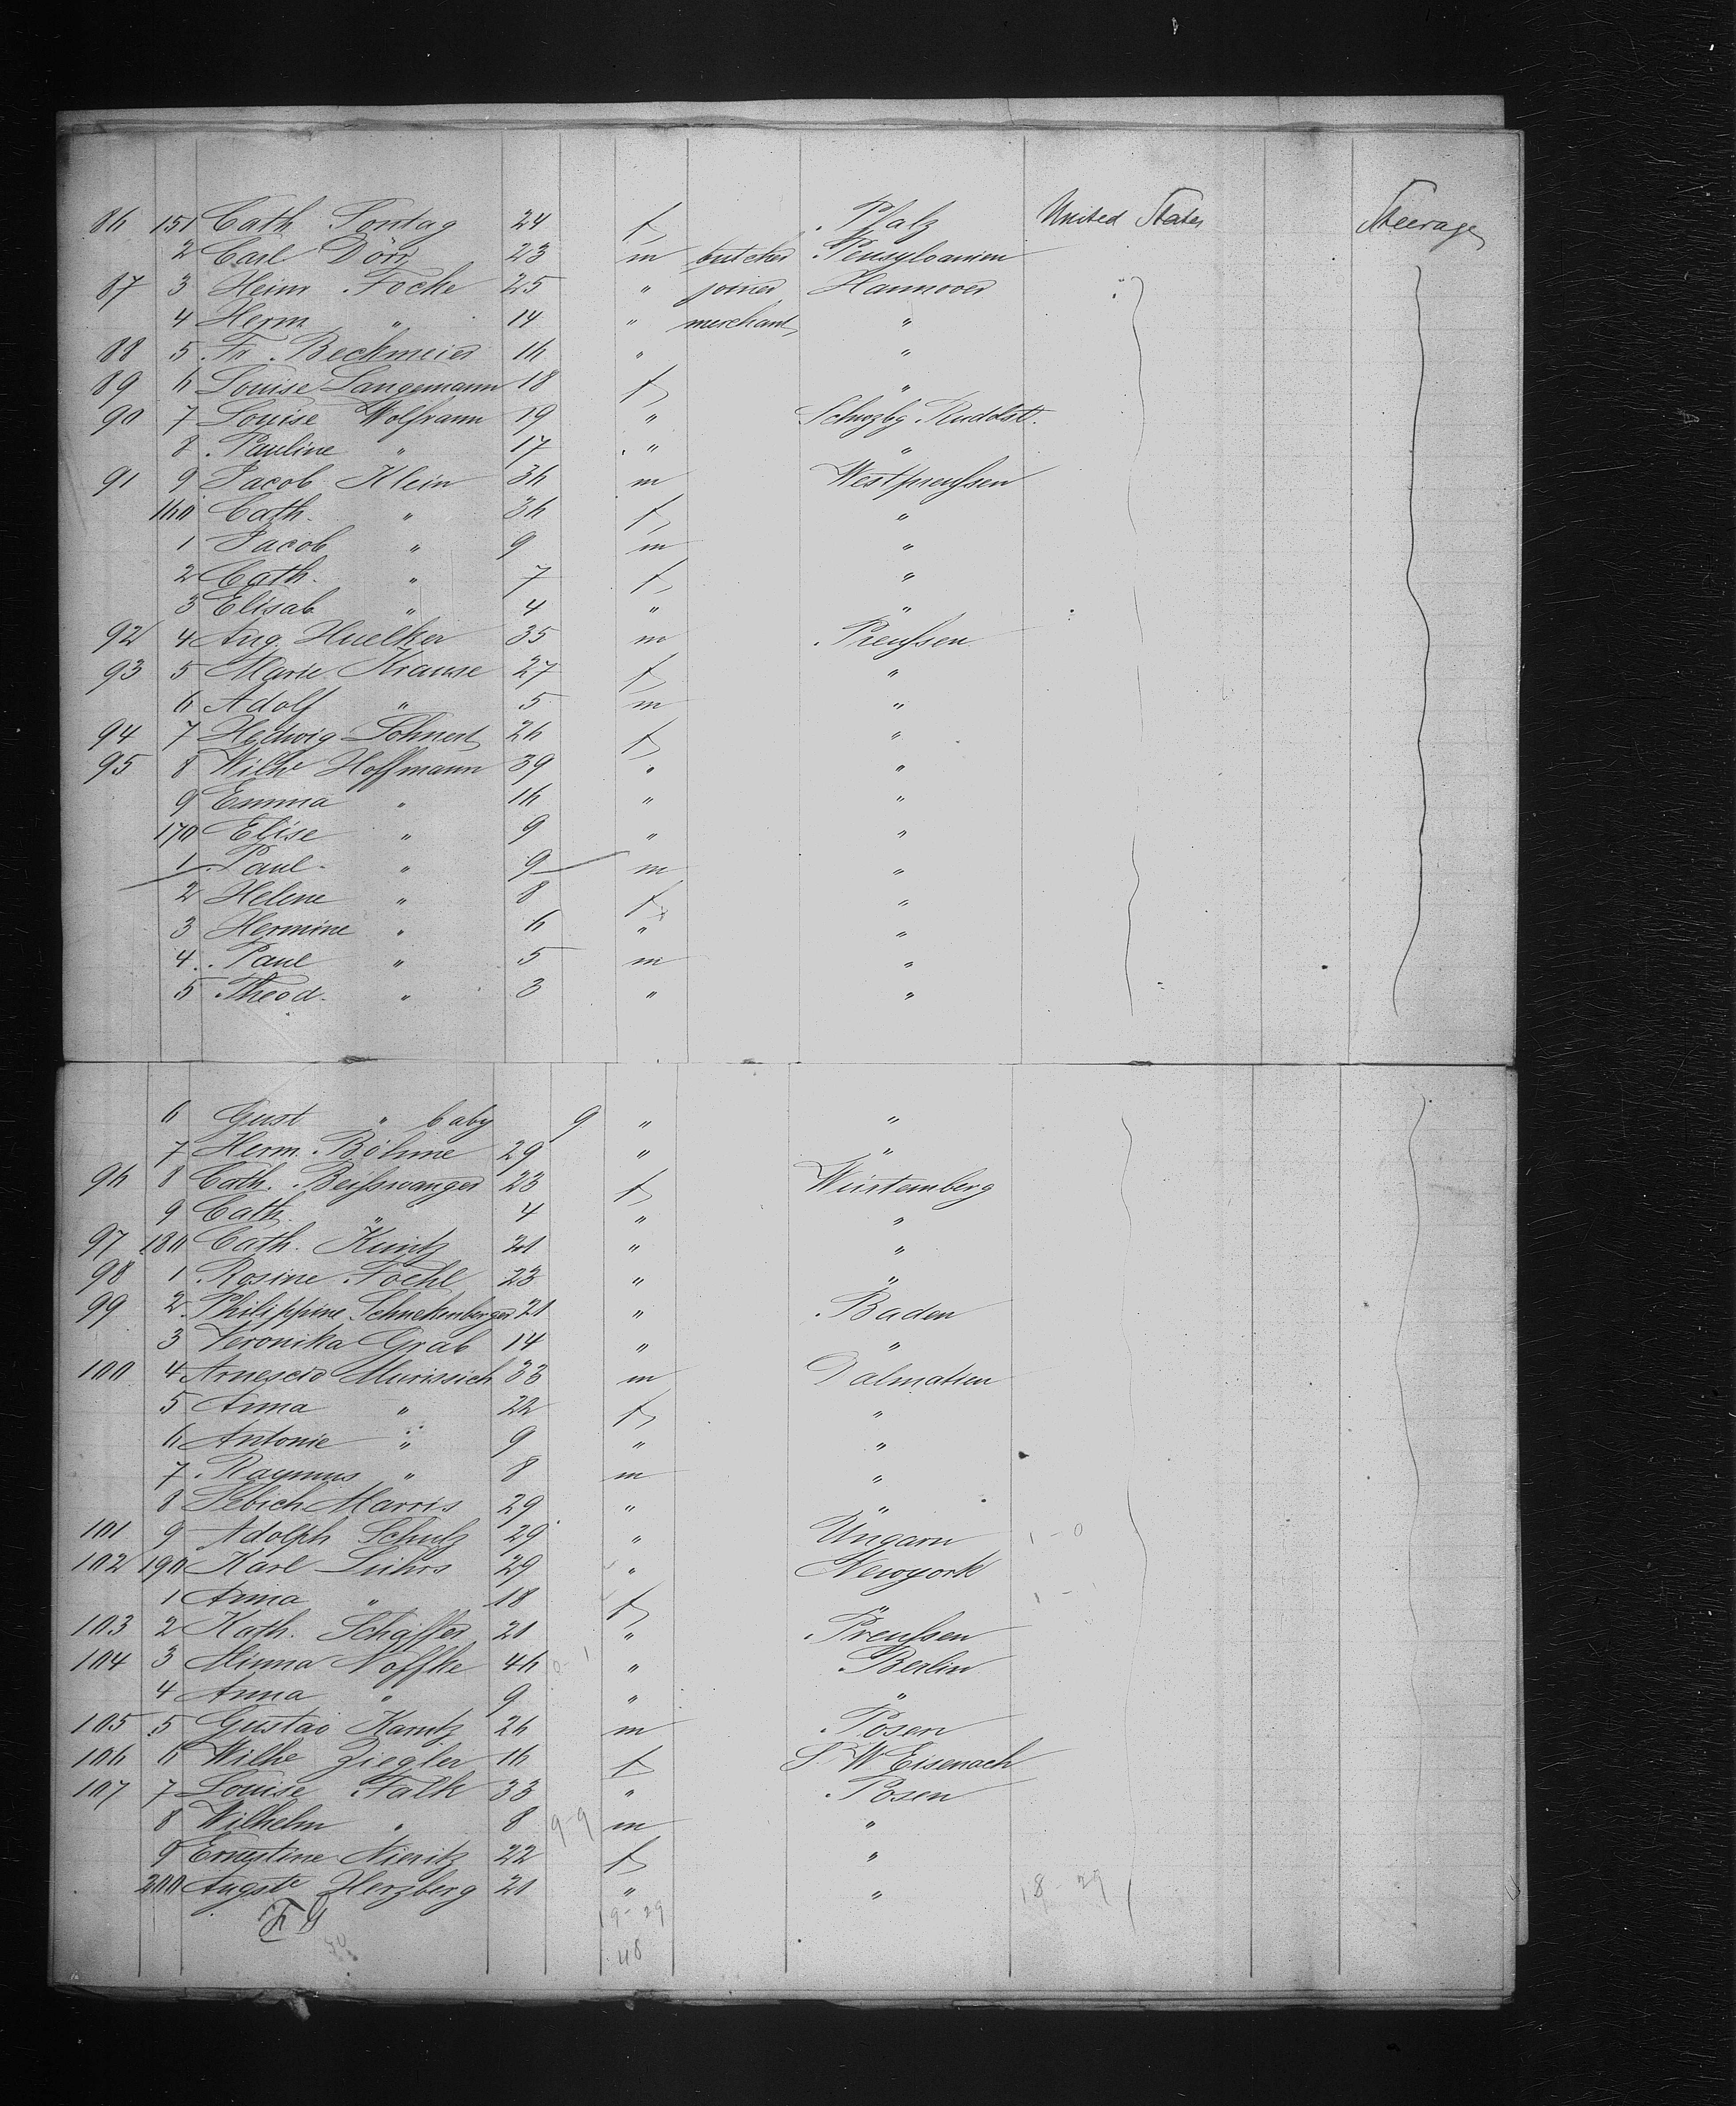 86 151 Cath Sontag 24 f Pfalz United States Steerage
2 Carl Dörr 23 m butcher Pensylvanien
87 3 Heinr Focke 25 " joiner Hannover "
4 Herm " 14 " merchant "
88 5 Fr. Beckmeier 16 " "
89 6 Louise Langemann 18 f "
90 7 Louise Wolfram 19 " Schwzbg Rudolst.
8 Pauline " 17 " "
91 9 Jacob Klein 36 m Westpreußen
160 Cath. " 36 f "
1 Jacob " 9 m "
2 Cath. " 7 f "
3 Elisab " 4 " "
92 4 Aug. Huelker 35 m Preußen
93 5 Marie Krause 27 f "
6 Adolf " 5 m "
94 7 Hedwig Lohnert 26 f "
95 8 Wilhe Hoffmann 39 " "
9 Emma " 16 " "
170 Elise " 9 " "
1 Paul " 9 m "
2 Helene " 8 f "
3 Hermine " 6 " "
4 Paul " 5 m "
5 Theod. " 3 " "
6 Gust " baby 9 " "
7 Herm. Böhme 29 " "
96 8 Cath. Beißwanger 23 f Würtemberg
9 Cath " 4 " "
97 180 Cath. Kuntz 21 " "
98 1 Rosine Foehl 23 " "
99 2 Philippine Schnekenberger 21 " Baden
3 Veronika Grab 14 " "
100 4 Arnescio Murissich 33 m Dalmatien
5 Anna " 22 f "
6 Antonie " 9 " "
7 Raymus " 8 m "
8 Sebich Marris 29 " "
101 9 Adolph Schulz 29 " Ungarn 1-0
102 190 Karl Lührs 29 " Newyork
1 Anna " 18 f "
103 2 Kath. Schäffer 21 " Preußen
104 3 Minna Noffke 46 0-1 " Berlin
4 Anna " 9 " "
105 5 Gustav Kanitz 26 m Posen
106 6 Wilhe Ziegler 16 f S. W Eisenach
107 7 Louise Falk 33 " Posen
8 Wilhelm " 8 9-9 m "
9 Ernestine Nieritz 22 f "
200 Augste Herzberg 21 " " 18-29
19-29
48